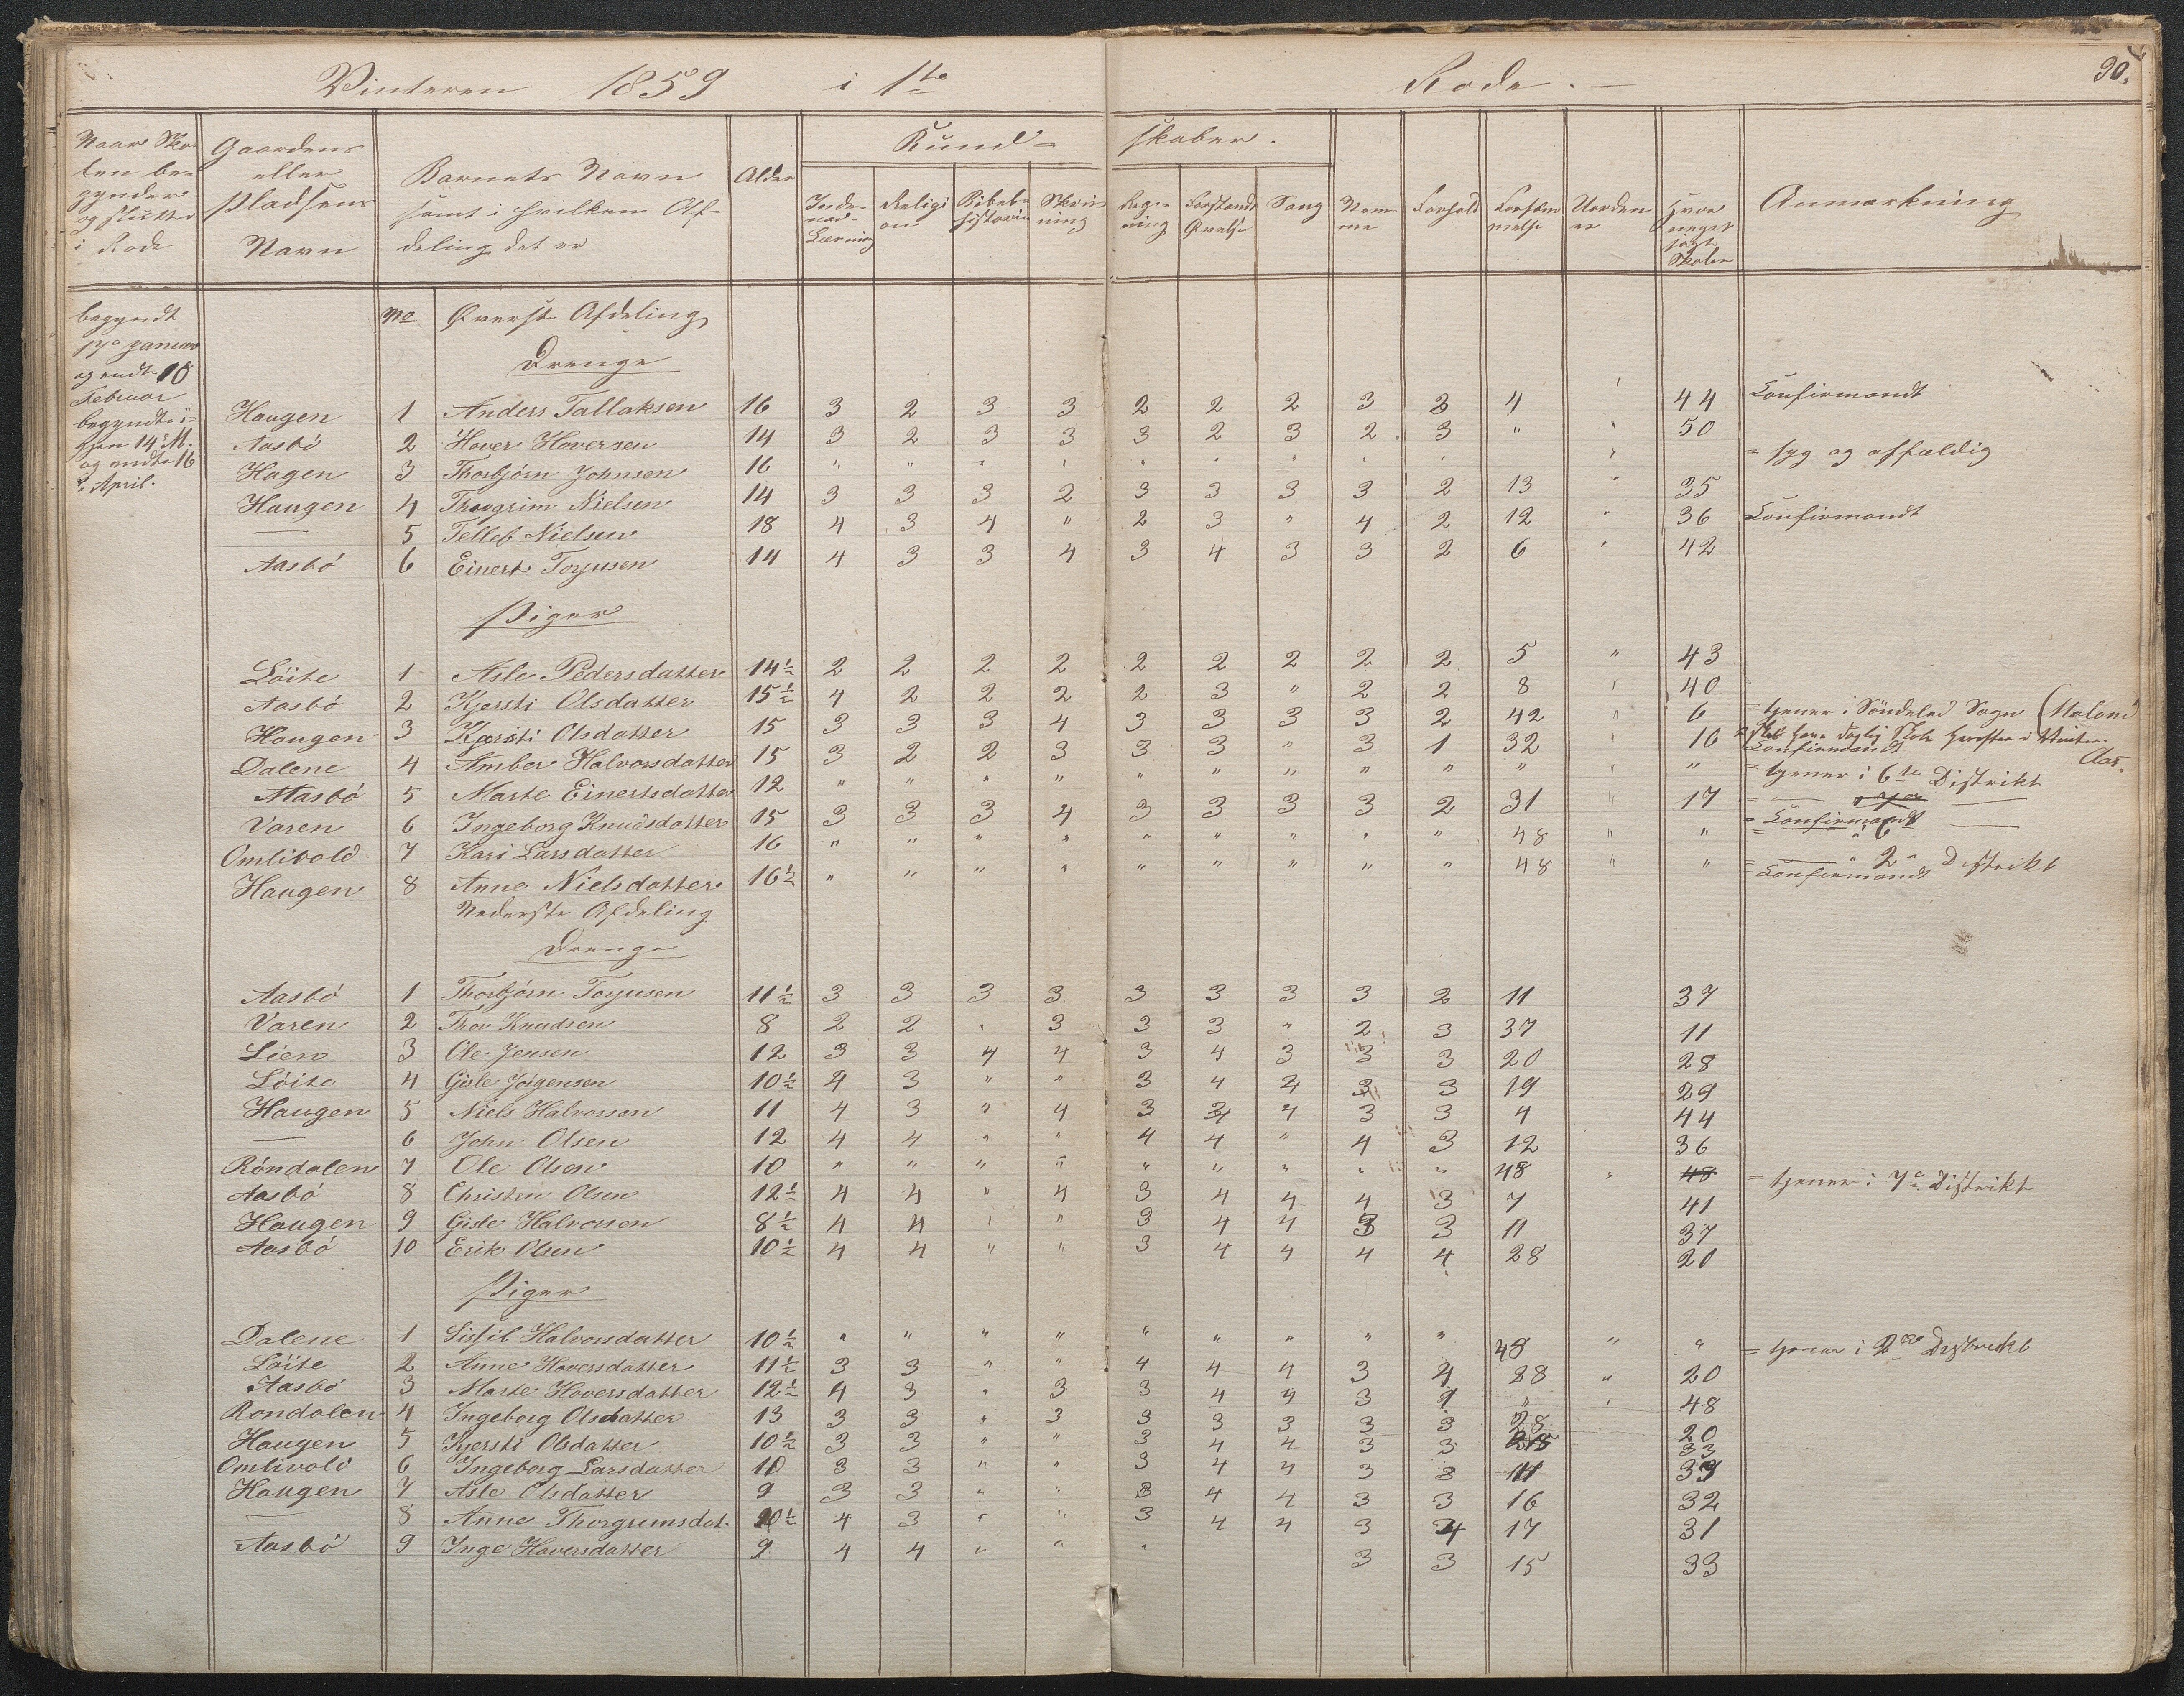 Vinteren 1859 i 1te Rode. 90.
Naar Skolen begynder og sluttes i Rode | Gaardens eller Pladsens Navn | Barnets Navn samt i hvilken Afdeling det er | Alder | Kundskaber. | Anmærkning
Religion | Bibelhistorie | Skrivning | Regning | Forstands Øvelse | Sang | Nemme | Forhold | Forsømmelse | Hvor meget søgt Skolen
begyndt 17de Januar og endt 18 Februar
begyndte igjen 14 M. og endte 16 April.
No Øverste Afdeling
Drenge
Haugen 1 Anders Tallaksen 16 3 2 3 3 2 2 2 3 3 4 " 44 Confirmandt
Aasbö 2 Hover Hoversen 14 3 2 3 3 3 2 3 2 3 " " 50
Hagen 3 Thorbjörn Johnsen 16 " " " " " " " " " = syg og affældig
Haugen 4 Thorgrim Nielsen 14 3 3 3 2 3 3 3 3 2 13 " 35
— 5 Telleb Nielsen 18 4 3 4 " 2 3 " 4 2 12 " 36 Confirmandt
Aasbö 6 Einert Torjusen 14 4 3 3 4 3 4 3 3 2 6 " 42
Piger
Löite 1 Asle Pedersdatter 14½ 2 2 2 2 2 2 2 2 2 5 " 43
Aasbö 2 Kjersti Olsdatter 15½ 4 2 2 2 2 3 " 2 2 8 " 40
Haugen 3 Kjersti Olsdatter 15 3 3 3 4 3 3 3 3 2 42 " 6 = tjener i Söndeled Sogn
Dalene 4 Amber Halvorsdatter 15 3 2 2 3 3 3 " 3 1 32 " 16 Confirmandt
Aasbö 5 Marte Einertsdatter 12 " " " " " " " " " " " " = tjener i 6te Distrikt
Varen 6 Ingeborg Knudsdatter 15 3 3 3 4 3 3 3 3 2 31 " 17 = Confirmandt
Omlivold 7 Kari Larsdatter 16 " " " " " " " " " 48 " " = — " 6 —
Haugen 8 Anne Nielsdatter 16½ " " " " " " " " " 48 " " = — " 2 " Distrikt Confirmandt
Nederste Afdeling
Drenge
Aasbö 1 Thorbjörn Torjusen 11½ 3 3 3 3 3 3 3 3 2 11 37
Varen 2 Thor Knudsen 8 2 2 " 3 3 3 " 2 3 37 11
Lien 3 Ole Jensen 12 3 3 4 4 3 4 3 3 3 20 28
Löite 4 Gisle Jörgensen 10½ 4 3 " " 3 4 4 3 3 19 29
Haugen 5 Niels Halvorsen 11 4 3 " 4 3 4 4 3 3 4 44
— 6 John Olsen 12 4 4 " " 4 4 " 4 3 12 36
Röndalen 7 Ole Olsen 10 " " " " " " " " " 48 " 48 = tjener i 7de Distrikt
Aasbö 8 Christen Olsen 12½ 4 4 " 4 3 4 4 4 3 7 41
Haugen 9 Gisle Halvorsen 8½ 4 4 " " 3 4 4 3 3 11 37
Aasbö 10 Erik Olsen 10½ 4 4 " " 3 4 4 4 4 28 20
Piger
Dalene 1 Sissil Halvorsdatter 10½ " " " " " " " " " 48 " " = tjener i 2det Distrikt
Löite 2 Anne Hoversdatter 11½ 3 3 " " 4 4 4 3 4 28 " 20
Aasbö 3 Marte Hoversdatter 12½ 4 3 " 3 3 4 4 3 " " 48
Rondalen 4 Ingeborg Olsdatter 13 3 3 " 3 3 3 3 3 3 28 20
Haugen 5 Kjersti Olsdatter 10½ 3 3 " " 3 4 4 3 3 33
Omlivold 6 Ingeborg Larsdatter 10 3 3 " " 3 4 4 3 3 11 37
Haugen 7 Asle Olsdatter 9 3 3 " " 3 4 4 3 3 16 32
— 8 Anne Thorgrimsdat. 10½ 4 3 " " 3 4 4 3 4 17 31
Aasbö 9 Inge Hoversdatter 9 4 4 " " " 3 3 15 33